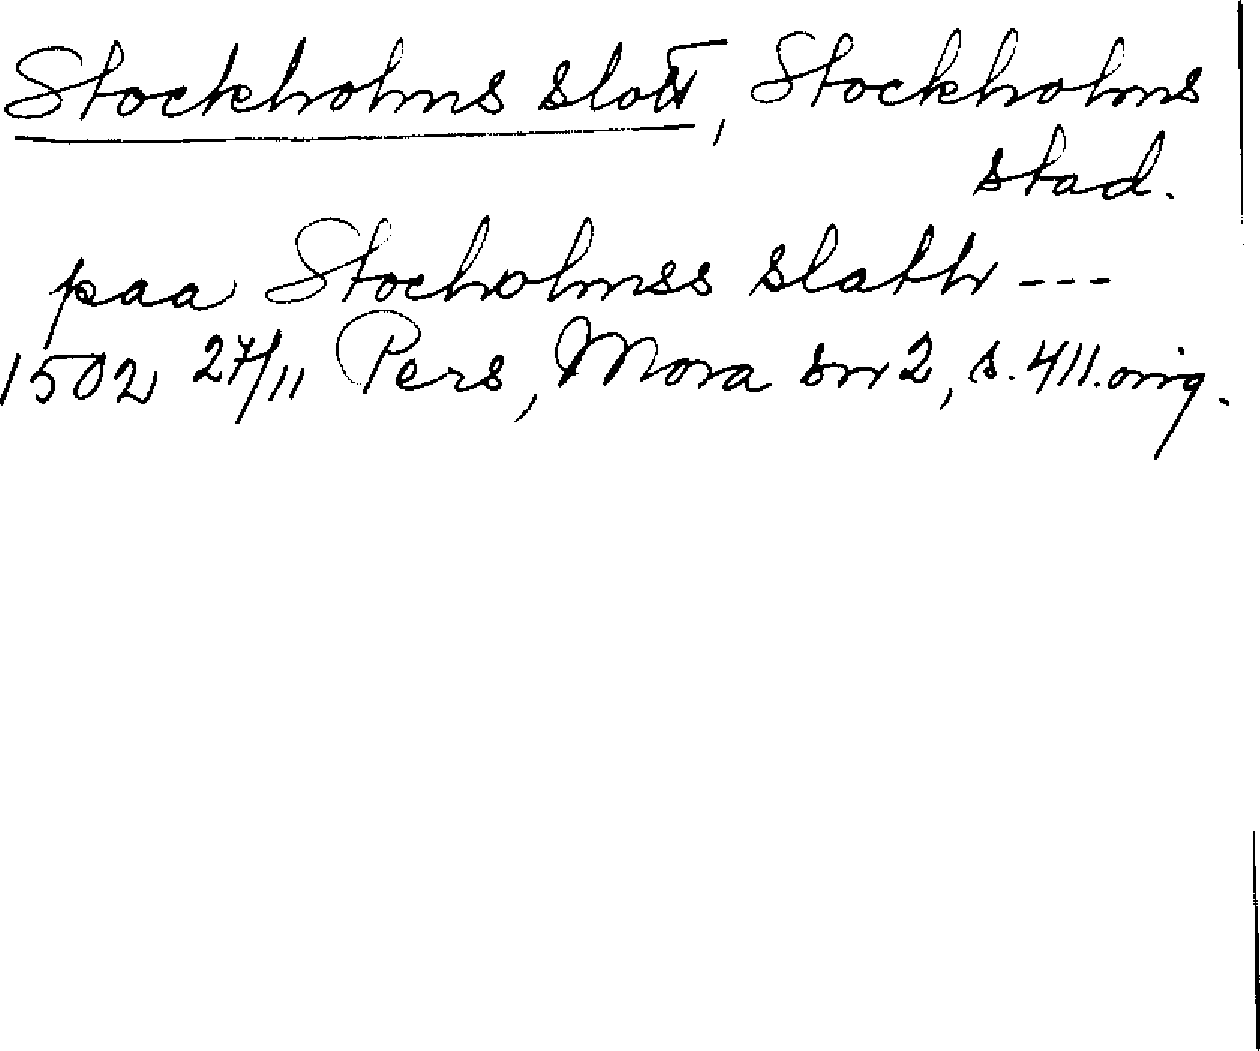 Stockholms slott, Stockholms
stad.
paa Stocholmss slath ---
1502 27/11 Pers, Mora sn 2, s. 411. orig.